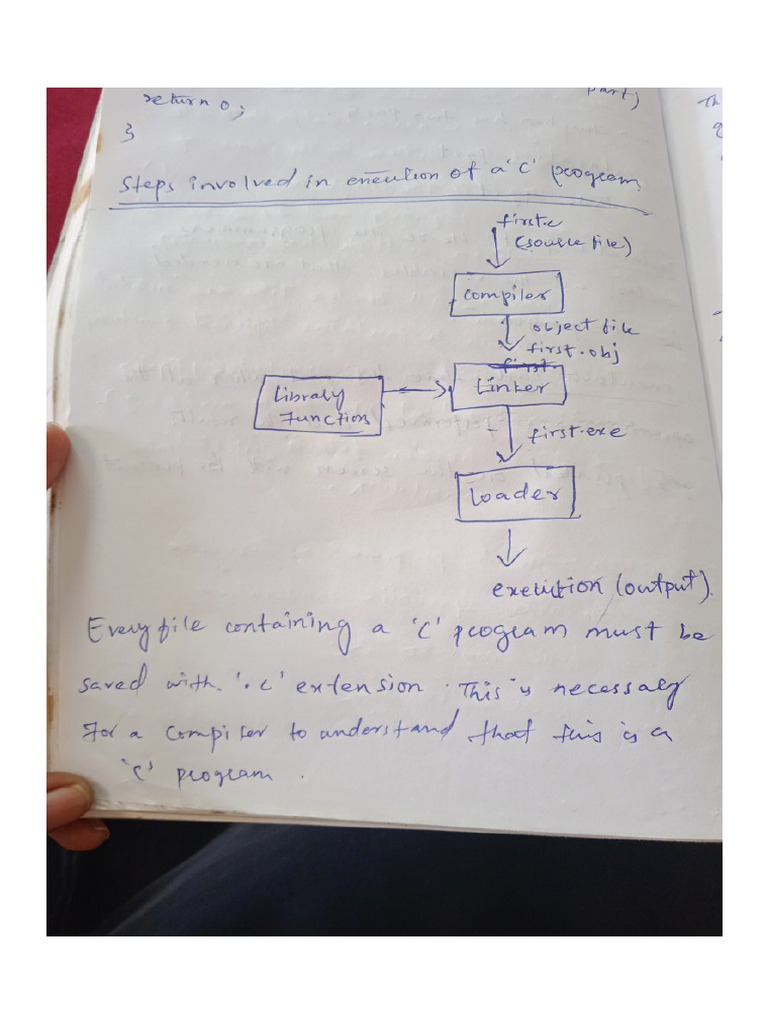 return 0;
part)
Th
}
Steps involved in execution of a 'C' program.
first.c
(source file)
compiler
object file
first.obj
first.
Linker
Library
Function
first.exe
Loader
execution (output).
Every file containing a 'C' program must be
saved with '.c' extension. This is necessary
For a compiler to understand that this is a
'C' program.